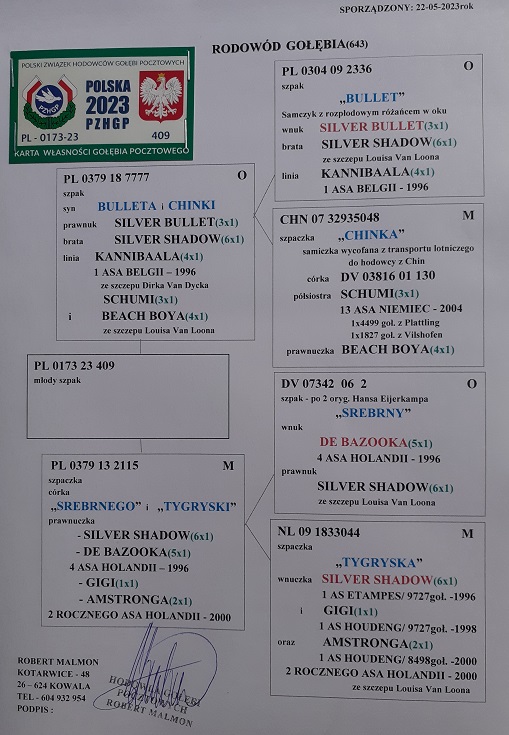 SPORZĄDZONY: 22-05-2023rok
RODOWÓD GOŁĘBIA(643)
POLSKI ZWIĄZEK HODOWCÓW GOŁĘBI POCZTOWYCH
PZHGP
POLSKA
2023
PZHGP
PL - 0173-23
409
KARTA WŁASNOŚCI GOŁĘBIA POCZTOWEGO
PL 0379 18 7777 O
szpak
syn BULLETA i CHINKI
prawnuk SILVER BULLET(3x1)
brata SILVER SHADOW(6x1)
linii KANNIBAALA(4x1)
1 ASA BELGII – 1996
ze szczepu Dirka Van Dycka
SCHUMI(3x1)
i BEACH BOYA(4x1)
ze szczepu Louisa Van Loona
PL 0173 23 409
młody szpak
PL 0379 13 2115 M
szpaczka
córka
„SREBRNEGO” i „TYGRYSKI”
prawnuczka
- SILVER SHADOW(6x1)
- DE BAZOOKA(5x1)
4 ASA HOLANDII – 1996
- GIGI(1x1)
- AMSTRONGA(2x1)
2 ROCZNEGO ASA HOLANDII - 2000
PL 0304 09 2336 O
szpak
„BULLET”
Samczyk z rozpłodowym różańcem w oku
wnuk SILVER BULLET(3x1)
brata SILVER SHADOW(6x1)
ze szczepu Louisa Van Loona
linia KANNIBAALA(4x1)
1 ASA BELGII - 1996
CHN 07 32935048 M
szpaczka „CHINKA”
samiczka wycofana z transportu lotniczego
do hodowcy z Chin
córka DV 03816 01 130
półsiostra SCHUMI(3x1)
13 ASA NIEMIEC - 2004
1x4499 goł. z Plattling
1x1827 goł. z Vilshofen
prawnuczka BEACH BOYA(4x1)
DV 07342 06 2 O
szpak - po 2 oryg. Hansa Eijerkampa
„SREBRNY”
wnuk
DE BAZOOKA(5x1)
4 ASA HOLANDII - 1996
prawnuk
SILVER SHADOW(6x1)
ze szczepu Louisa Van Loona
NL 09 1833044 M
szpaczka
„TYGRYSKA”
wnuczka SILVER SHADOW(6x1)
1 AS ETAMPES/ 9727goł. -1996
i GIGI(1x1)
1 AS HOUDENG/ 9727goł. -1998
oraz AMSTRONGA(2x1)
1 AS HOUDENG/ 8498goł. -2000
2 ROCZNEGO ASA HOLANDII - 2000
ze szczepu Louisa Van Loona
ROBERT MALMON
KOTARWICE - 48
26 – 624 KOWALA
TEL - 604 932 954
PODPIS :
HODOWLA GOŁĘBI
POCZTOWYCH
ROBERT MALMON